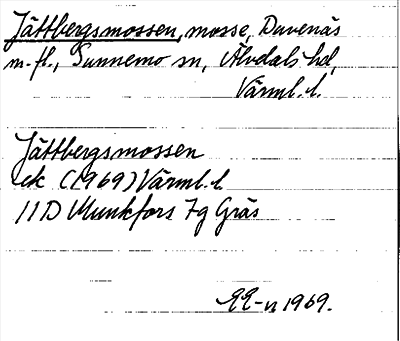 Jättbergsmossen, mosse, Duvenäs
m. fl., Sunnemo sn, Älvdals hd,
Värml. l.
Jättbergsmossen
ek (1969) Värml. l
11D Munkfors 7g Gräs
1969.